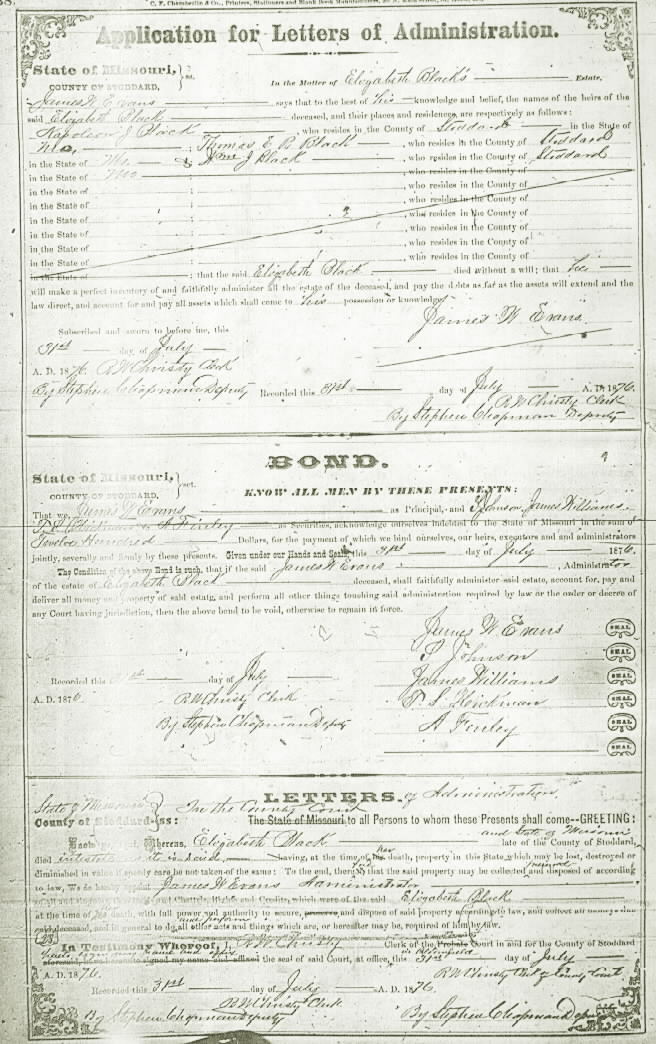 C. F. Chamberlin & Co., Printers, Stationers and Blank Book Manufacturers,
Application for Letters of Administration.
State of Missouri, } ss.
COUNTY OF STODDARD,
In the Matter of Elizabeth Black's Estate.
James W Evans says that to the best of his knowledge and belief, the names of the heirs of the
said Elizabeth Black deceased, and their places and residences, are respectively as follows:
Napoleon J Black , who resides in the County of Stoddard in the State of
Mo, ; Thomas E R Black , who resides in the County of Stoddard
in the State of Mo. & Wm J Black , who resides in the County of Stoddard
in the State of Mo ; , who resides in the County of
in the State of ; , who resides in the County of
in the State of ; , who resides in the County of
in the State of ; , who resides in the County of
in the State of ; , who resides in the County of
in the State of ; , who resides in the County of
in the State of ; , who resides in the County of
in the State of ; that the said Elizabeth Black died without a will; that he
will make a perfect inventory of and faithfully administer all the estate of the deceased, and pay the debts as far as the assets will extend and the
law direct, and account for and pay all assets which shall come to his possession or knowledge
James W Evans
Subscribed and sworn to before me, this
31st day of July
A. D. 1876. R W Christy Clerk
By Stephen Chapman Deputy Recorded this 31st day of July A. D. 1876.
R W Christy Clerk
By Stephen Chapman Deputy
BOND.
State of Missouri, } sct.
COUNTY OF STODDARD,
KNOW ALL MEN BY THESE PRESENTS:
That we, James W Evans as Principal, and P Johnson James Williams
P S Hickman & A Finley as Securities, acknowledge ourselves indebted to the State of Missouri in the sum of
Twelve Hundred Dollars, for the payment of which we bind ourselves, our heirs, executors and and administrators
jointly, severally and firmly by these presents. Given under our Hands and Seals, this 31st day of July 1876.
The Condition of the above Bond is such, that if the said James W Evans , Administrator
of the estate of Elizabeth Black deceased, shall faithfully administer said estate, account for, pay and
deliver all money and property of said estate, and perform all other things touching said administration required by law or the order or decree of
any Court having jurisdiction, then the above bond to be void, otherwise to remain in force.
James W Evans SEAL
P Johnson SEAL
Recorded this 31st day of July James Williams SEAL
A. D. 1876 R W Christy Clerk P. S. Hickman SEAL
By Stephen Chapman Deputy A Finley SEAL
SEAL
LETTERS of Administration
State of Missouri
County of Stoddard ss: In the County Court
The State of Missouri to all Persons to whom these Presents shall come--GREETING:
Whereas, Elizabeth Black late of the County of Stoddard, and State of Missouri
died intestate as it is said, having, at the time of her death, property in this State which may be lost, destroyed or
diminished in value, if speedy care be not taken of same: To the end, therefore, that the said property may be collected and disposed of according
to law, We do hereby appoint James W Evans Administrator
of all and singular the Goods and Chattels, Rights and Credits, which were of the said Elizabeth Black
at the time of death, with full power and authority to secure, and dispose of said property according to law, and collect all moneys due
said deceased, and in general to do and perform all other acts and things which are, or hereafter may be, required of him by law.
In Testimony Whereof, I, R W Christy Clerk of the Probate Court in and for the County of Stoddard
the seal of said Court, at office, this 31st day of July
A. D. 1876. R W Christy Clk of County Court
Recorded this 31st day of July A. D. 1876,
R W Christy Clerk
By Stephen Chapman Deputy By Stephen Chapman Deputy